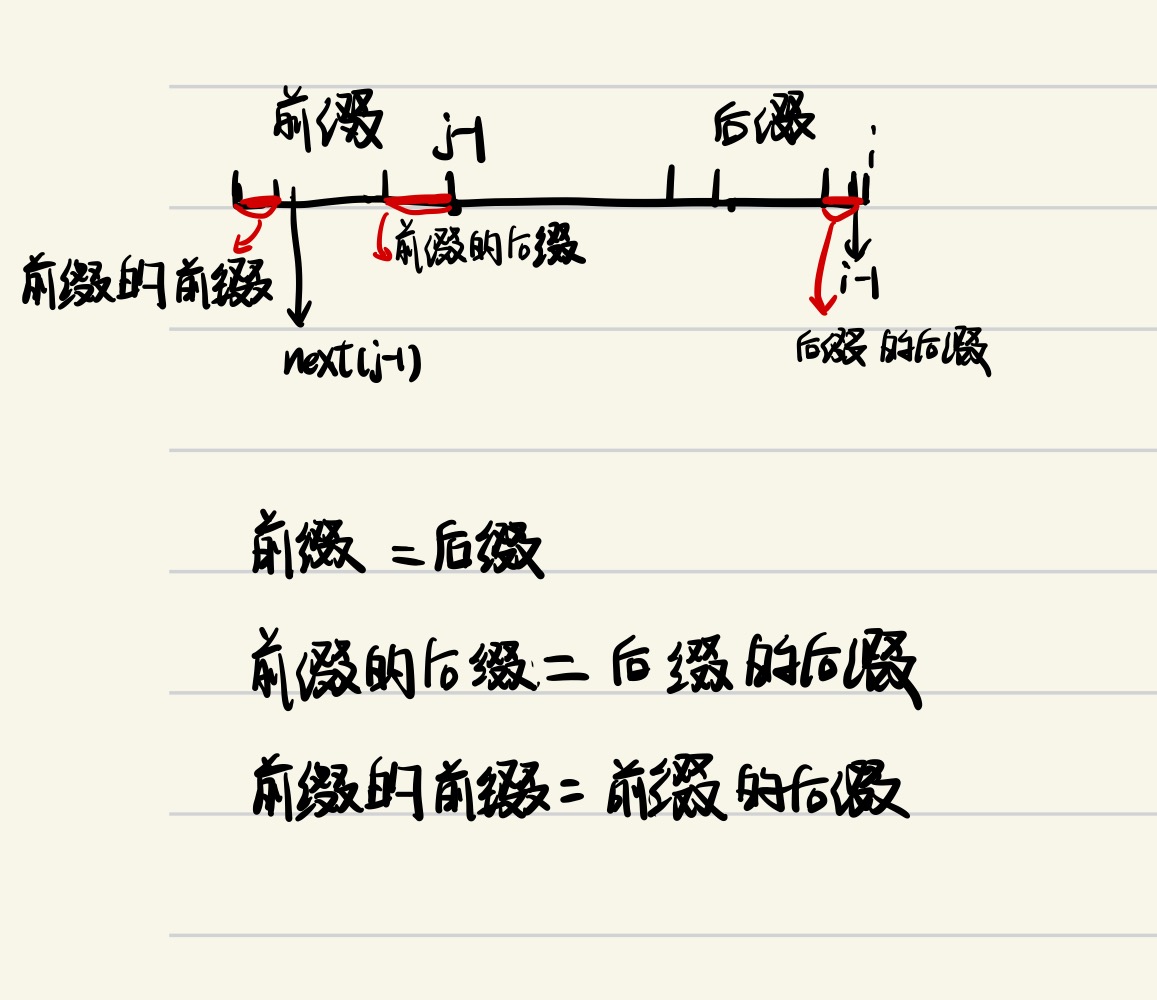 前缀 j-1 后缀 i
前缀的后缀
前缀的前缀 i-1
next(j-1) 后缀的后缀
前缀 = 后缀
前缀的后缀 = 后缀的后缀
前缀的前缀 = 前缀的后缀